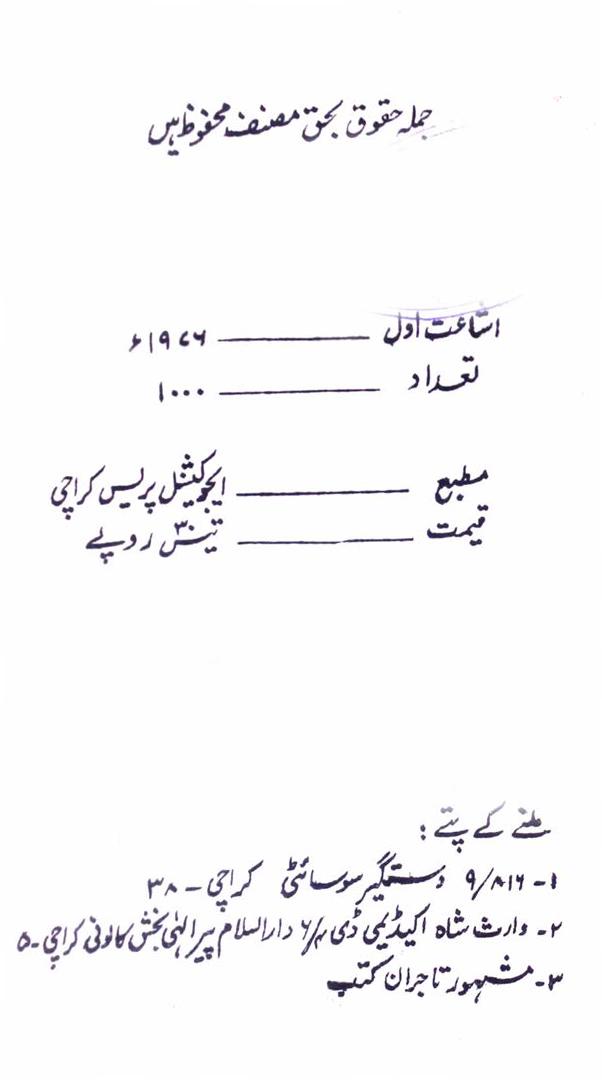 جملہ حقوق بحق مصنف محفوظ ہیں
اشاعت اول ــــــــــ ۱۹۷۶ء
تعداد ــــــــــ ۱۰۰۰
مطبع ــــــــــ ایجوکیشنل پریس کراچی
قیمت ــــــــــ تیس ۳۰ روپے
ملنے کے پتے :
۱- ۹/۸۱۶ دستگیر سوسائٹی کراچی - ۳۸
۲- وارث شاہ اکیڈیمی ڈی ۶/۴ دارالسلام پیر الٰہی بخش کالونی کراچی - ۵
۳- مشہور تاجران کتب